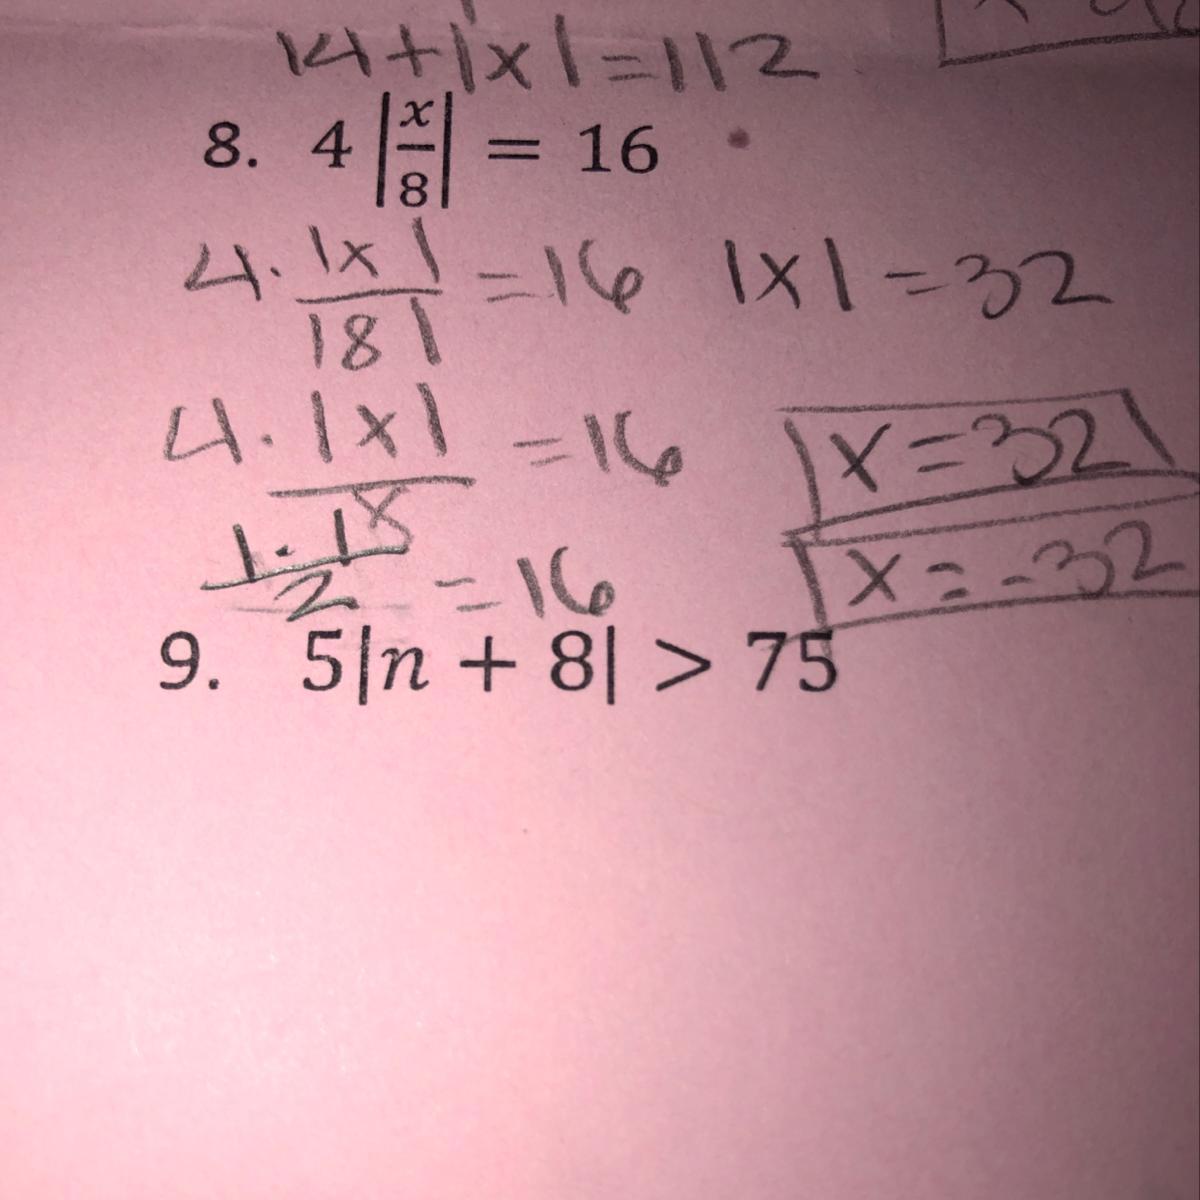 14+|x|=112
8. 4|x/8| = 16
4·|x|/|8| =16 |x|=32
4·|x|/ =16 x=32
=16 x=-32
9. 5|n + 8| > 75